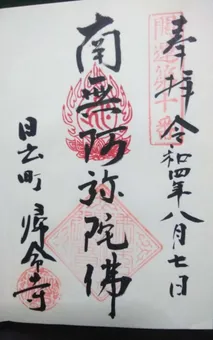 奉拝 令和四年八月七日
南無阿弥陀佛
日出町 帰命寺